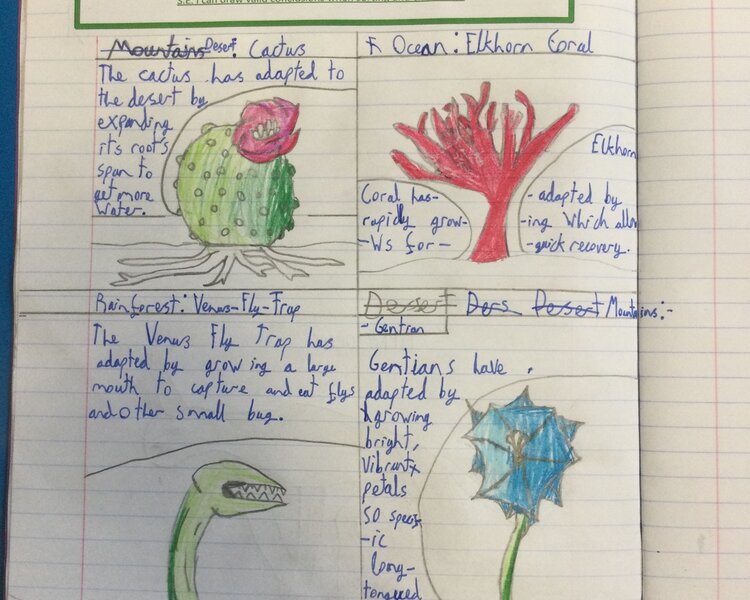 S.E. I can draw valid conclusions
Mountains Desert: Cactus
The cactus has adapted to
the desert by
expanding
its root's
span to
get more
water.
Ocean: Elkhorn Coral
Elkhorn
Coral has-
rapidy grow-
-ws for-
- adapted by
-ing which allow
-quick recovery.
Rainforest: Venus-Fly-Trap
The Venus Fly Trap has
adapted by growing a large
mouth to capture and eat flys
and other small bug.
Desert Ders Desert Mountains:-
- Gentian
Gentians have
adapted by
growing
bright,
Vibrant
petals
so specif
-ic
long-
tongued